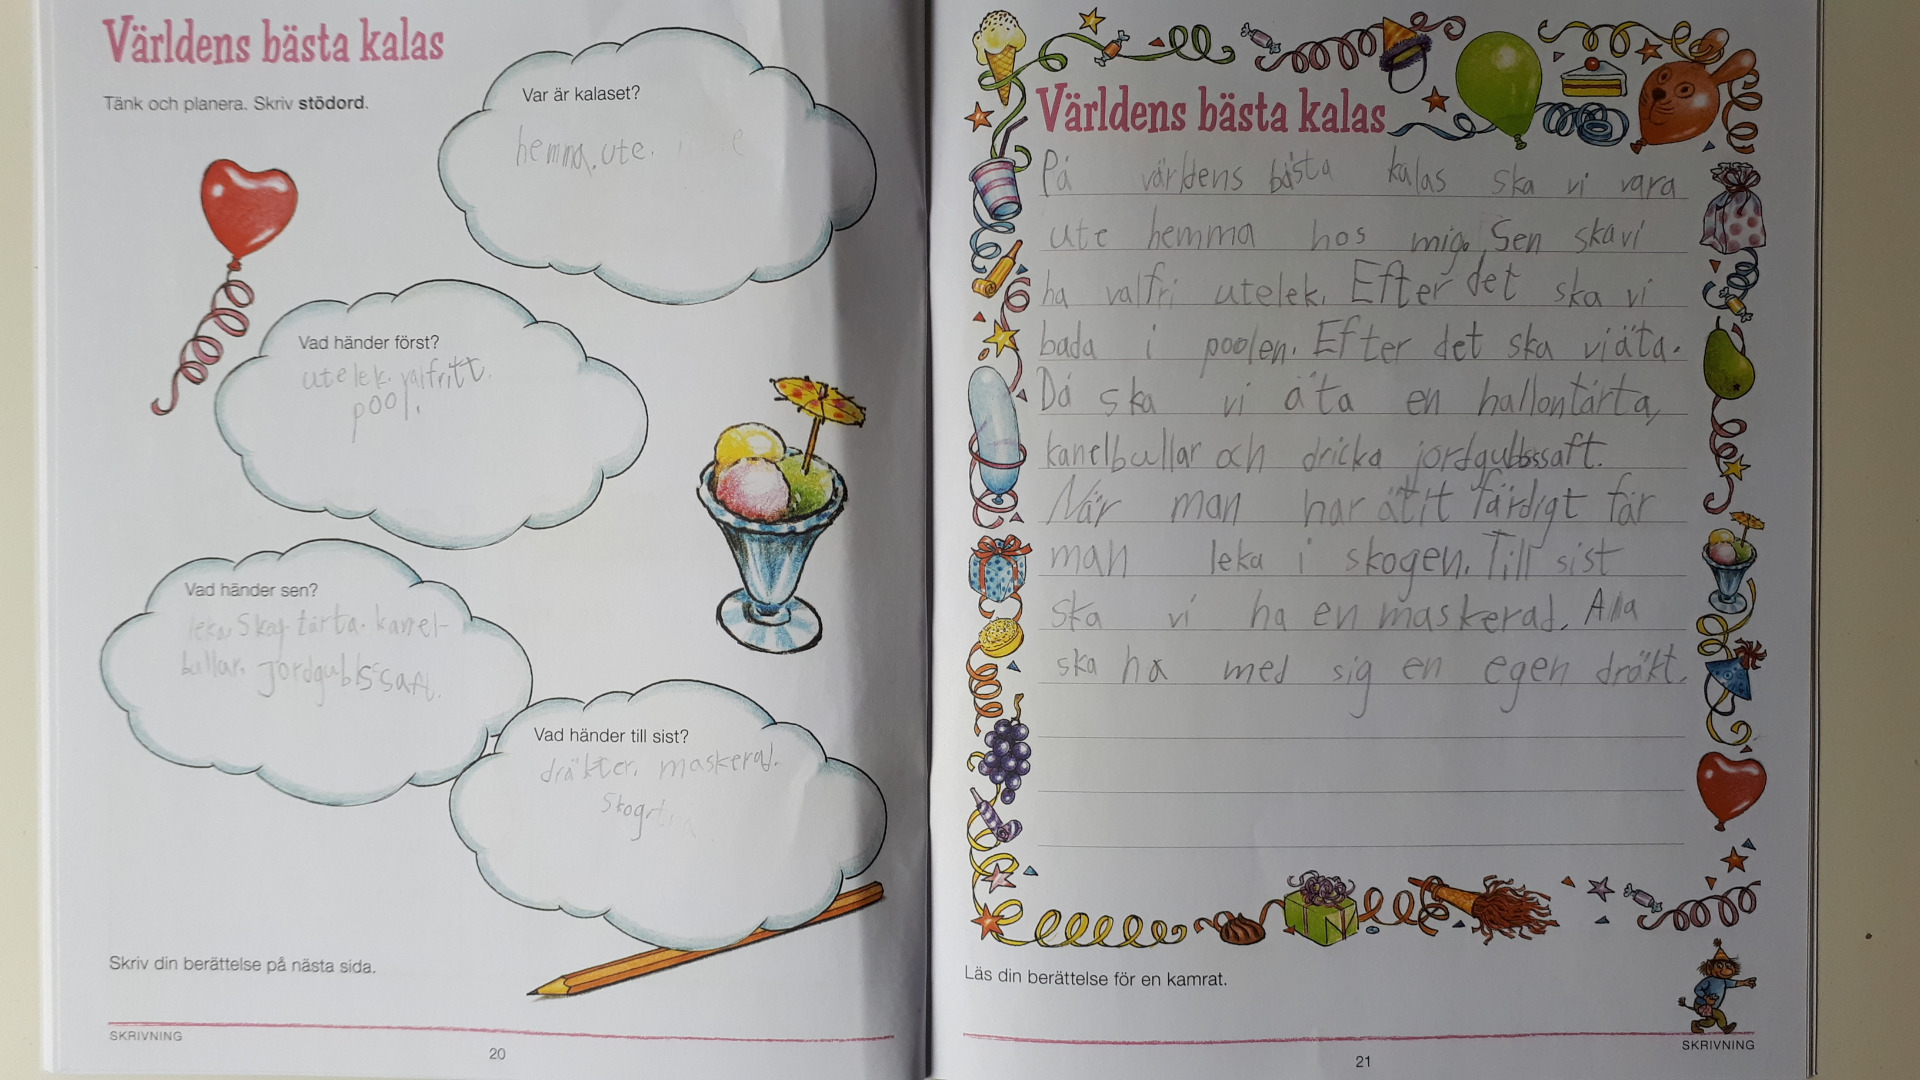 Världens bästa kalas
Tänk och planera. Skriv stödord.
Var är kalaset?
hemma. ute.
Vad händer först?
utelek. valfritt.
pool.
Vad händer sen?
leka. skog. tårta. kanel-
bullar. jordgubbssaft.
Vad händer till sist?
dräkter. maskerad.
Skriv din berättelse på nästa sida.
SKRIVNING
20
Världens bästa kalas
På världens bästa kalas ska vi vara
ute hemma hos mig. Sen ska vi
ha valfri utelek. Efter det ska vi
bada i poolen. Efter det ska vi äta.
Då ska vi äta en hallontårta,
kanelbullar och dricka jordgubbssaft.
När man har ätit färdigt får
man leka i skogen. Till sist
ska vi ha en maskerad. Alla
ska ha med sig en egen dräkt.
Läs din berättelse för en kamrat.
SKRIVNING
21